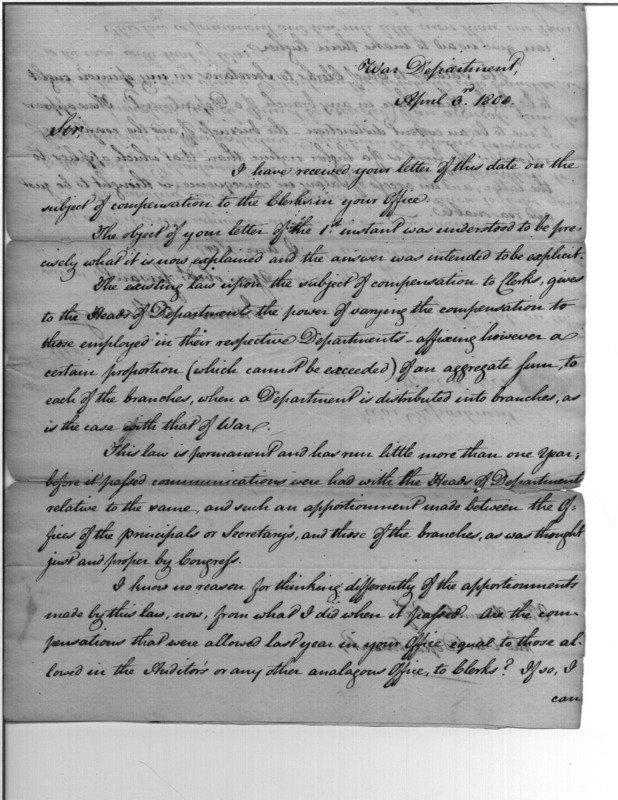 War Department,
April 3rd. 1800.
Sir,
I have received your letter of this date on the
subject of compensation to the Clerks, in your Office.
The object of your letter of the 1st instant was understood to be pre-
cisely what it is now explained and the answer was intended to be explicit.
The existing law upon the subject of compensation to Clerks, gives
to the Heads of Departments the power of varying the compensation to
those employed in their respective Departments - affixing however a
certain proportion (which cannot be exceeded) of an aggregate sum, to
each of the branches, when a Department is distributed into branches, as
is the case with that of War.
This law is permanent and has run little more than one Year;
before it passed communications were had with the Heads of Department
relative to the same, and such an apportionment made between the Of-
fices of the principals or Secretary's, and those of the branches, as was thought
just and proper by Congress.
I know no reason for thinking differently of the apportionments
made by this law, now, from what I did when it passed. Are the com-
pensations that were allowed last year in your Office equal to those al-
lowed in the Auditor's or any other analagous Office, to Clerks? If so, I
can